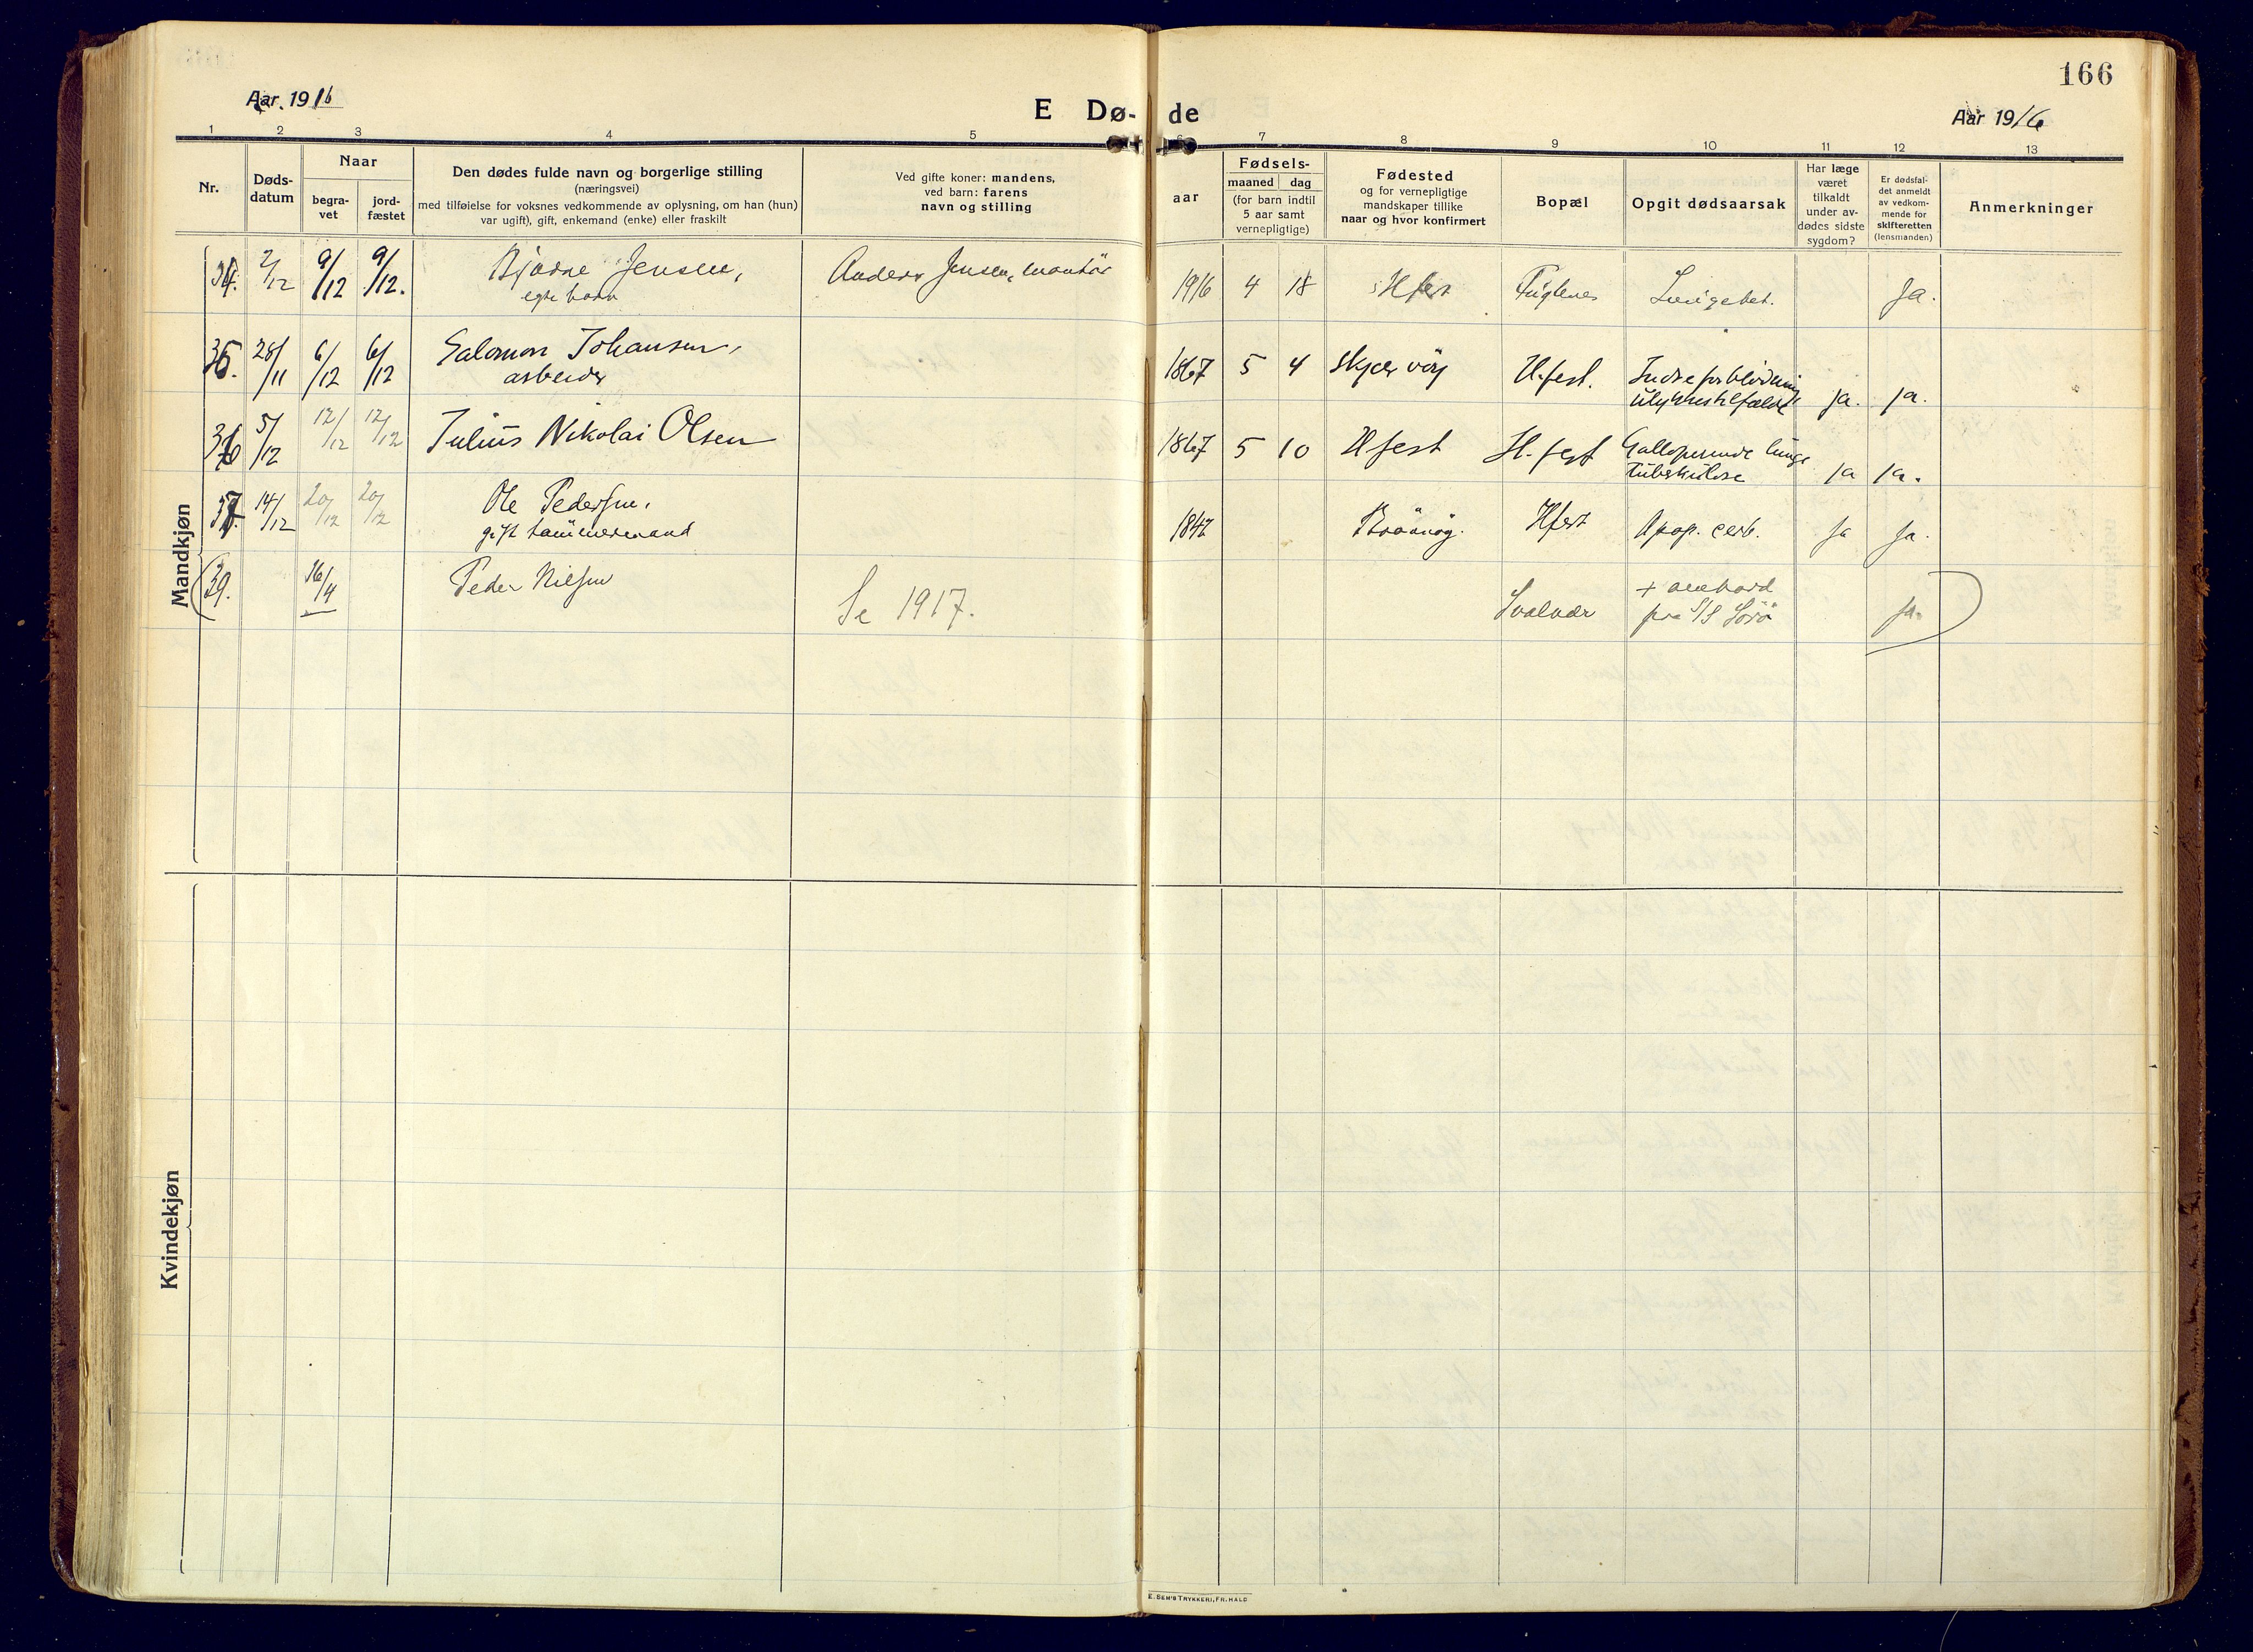 166
Aar 1916
E Dø-de
Aar 1916
1 2 3 4 5 6 7 8 9 10 11 12 13
Nr.
Døds-
datum
Naar
begra-
vet
jord-
fæstet
Den dødes fulde navn og borgerlige stilling
(næringsvei)
med tilføielse for voksnes vedkommende av oplysning, om han (hun)
var ugift), gift, enkemand (enke) eller fraskilt
Ved gifte koner: mandens,
ved barn: farens
navn og stilling
aar
Fødsels-
maaned dag
(for barn indtil
5 aar samt
vernepligtige)
Fødested
og for vernepligtige
mandskaper tillike
naar og hvor konfirmert
Bopæl
Opgit dødsaarsak
Har læge
været
tilkaldt
under av-
dødes sidste
sygdom?
Er dødsfal-
det anmeldt
av vedkom-
mende for
skifteretten
(lensmanden)
Anmerkninger
Mandkjøn
34. 2/12 9/12 9/12. Bjarne Jensen, Anders Jensen, montør 1916 4 18 Hfest Fuglenes Lungebet. Ja.
egte barn
35. 28/11 6/12 6/12 Salomon Johansen, 1867 5 4 Skjervöy H.fest. Indre forblödning
arbeider ulykkestilfælde ja. ja.
36 5/12 12/12 12/12 Julius Nikolai Olsen 1867 5 10 Hfest H.fest Galloperende lunge
tuberkulose ja ja.
37. 14/12 20/12 20/12 Ole Pedersen, 1842 Hfest Apop. cerb. ja ja.
gift tømmermand
(39. 16/4 Peder Nilsen Se 1917. Svolvær + ombord
paa S/S Sörö ja.)
Kvindekjøn
E. SEM'S TRYKKERI, FR.HALD